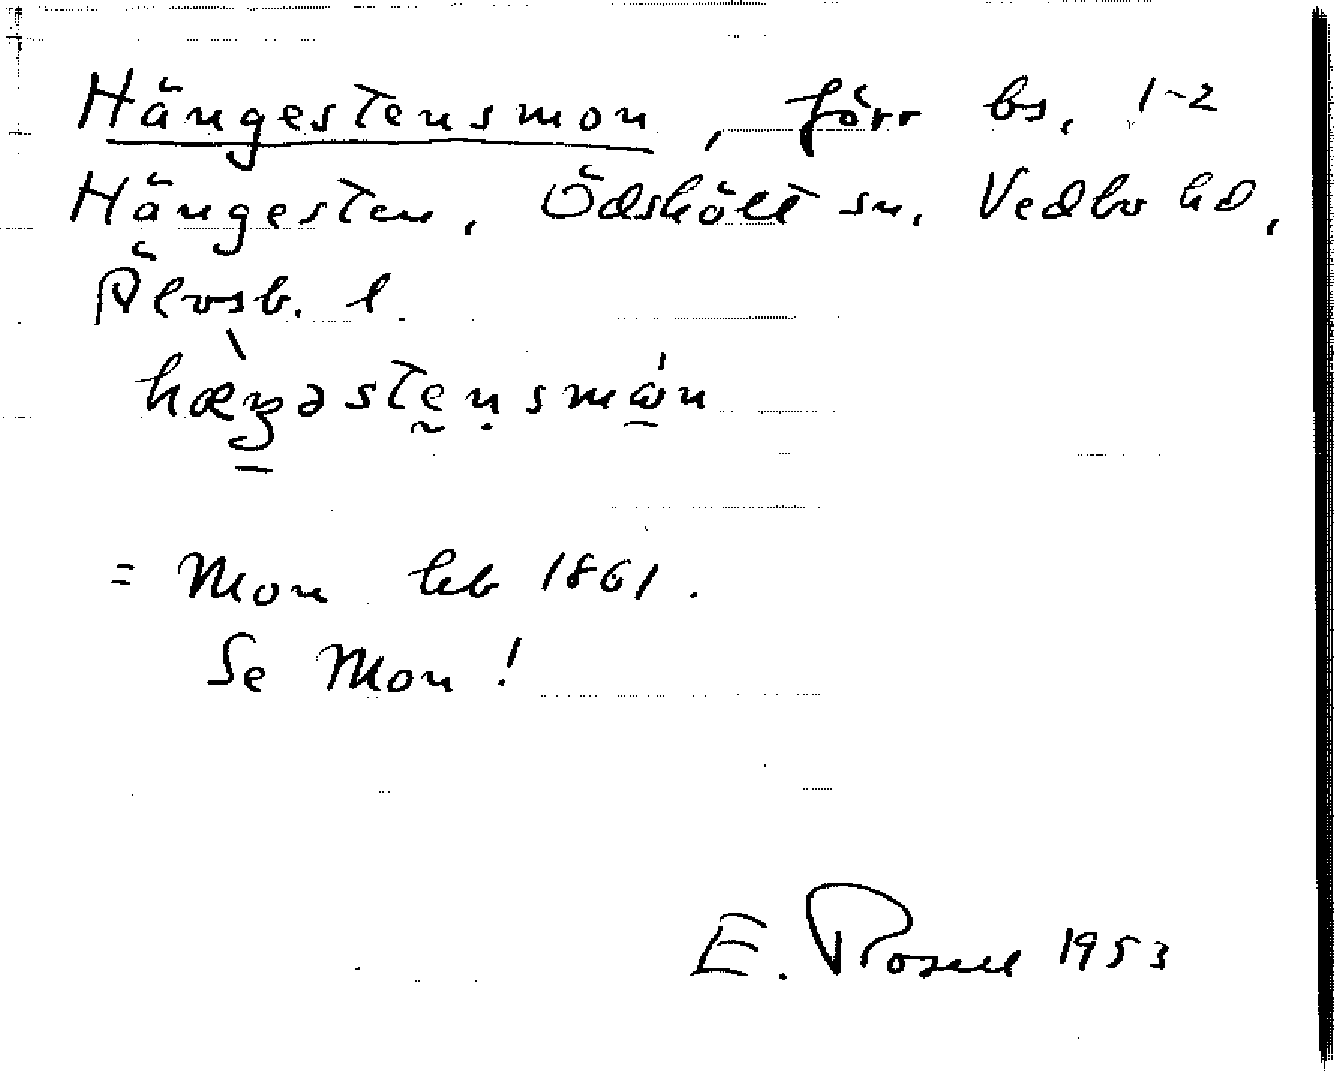 Hängestensmon, förr bs, 1-2
Hängesten, Ödskölt sn, Vedbo hd,
Älvsb. l.
hæŋəstḛṇsmωn
= Mon hfb 1861.
Se Mon!
E. Rosell 1953